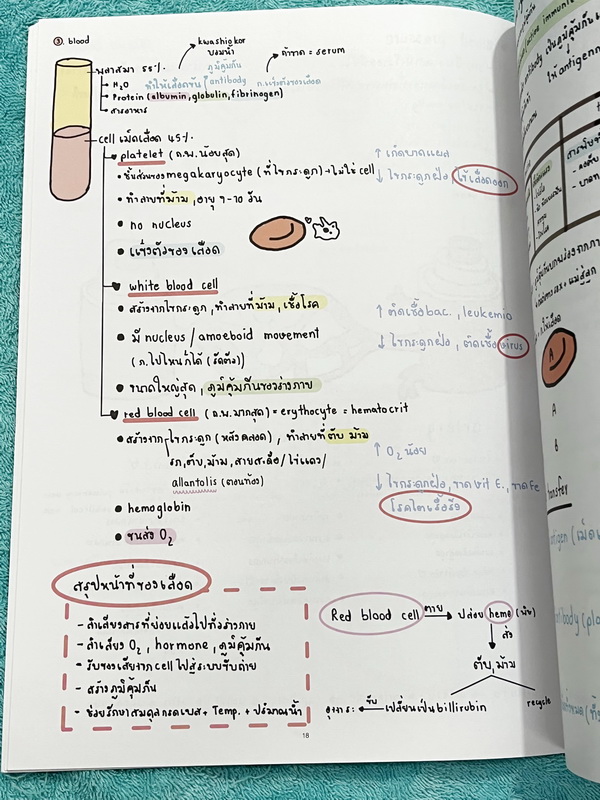 ③. blood
kwashiorkor
บวมน้ำ
ถ้าขาด = serum
พลาสมา 55%
ภูมิคุ้มกัน
H₂O
ทำให้เลือดข้น
antibody
ก.แข็งตัวของเลือด
Protein (albumin, globulin, fibrinogen)
สารอาหาร
cell เม็ดเลือด 45%
platelet (ฉ.พ. น้อยสุด)
↑ เกิดบาดแผล
ชิ้นส่วนของ megakaryocyte (ที่ไขกระดูก) → ไม่ใช่ cell
↓ ไขกระดูกฝ่อ, ไข้เลือดออก
ทำลายที่ม้าม, อายุ 7-10 วัน
no nucleus
แข็งตัวของเลือด
white blood cell
สร้างจากไขกระดูก, ทำลายที่ม้าม, เชื้อโรค
↑ ติดเชื้อ bac., leukemia
มี nucleus / amoeboid movement
↓ ไขกระดูกฝ่อ, ติดเชื้อ virus
(ก. ไปไหนก็ได้ (รัดตัว)
ขนาดใหญ่สุด, ภูมิคุ้มกันของร่างกาย
red blood cell (ฉ.พ. มากสุด) = erythocyte = hematocrit
สร้างจาก ไขกระดูก (หลังคลอด), ทำลายที่ ตับ ม้าม
↑ O₂ น้อย
รก, ตับ, ม้าม, สายสะดือ / ไข่แดง /
allantolis (ตอนท้อง)
↓ ไขกระดูกฝ่อ, ขาด vit E., ขาด Fe
โรคไตเรื้อรัง
hemoglobin
ขนส่ง O₂
สรุปหน้าที่ของเลือด
- ลำเลียงสารที่ย่อยแล้วไปทั่วร่างกาย
- ลำเลียง O₂, hormone, ภูมิคุ้มกัน
- รับของเสียจาก cell ไปสู่ระบบขับถ่าย
- สร้างภูมิคุ้มกัน
- ช่วยรักษาสมดุลกรดเบส + Temp. + ปริมาณน้ำ
Red blood cell ตาย → ปล่อย heme
ส่ง
ตับ, ม้าม
อุจจาระ ← ขับ เปลี่ยนเป็น billirubin
recycle
18
A
A
B